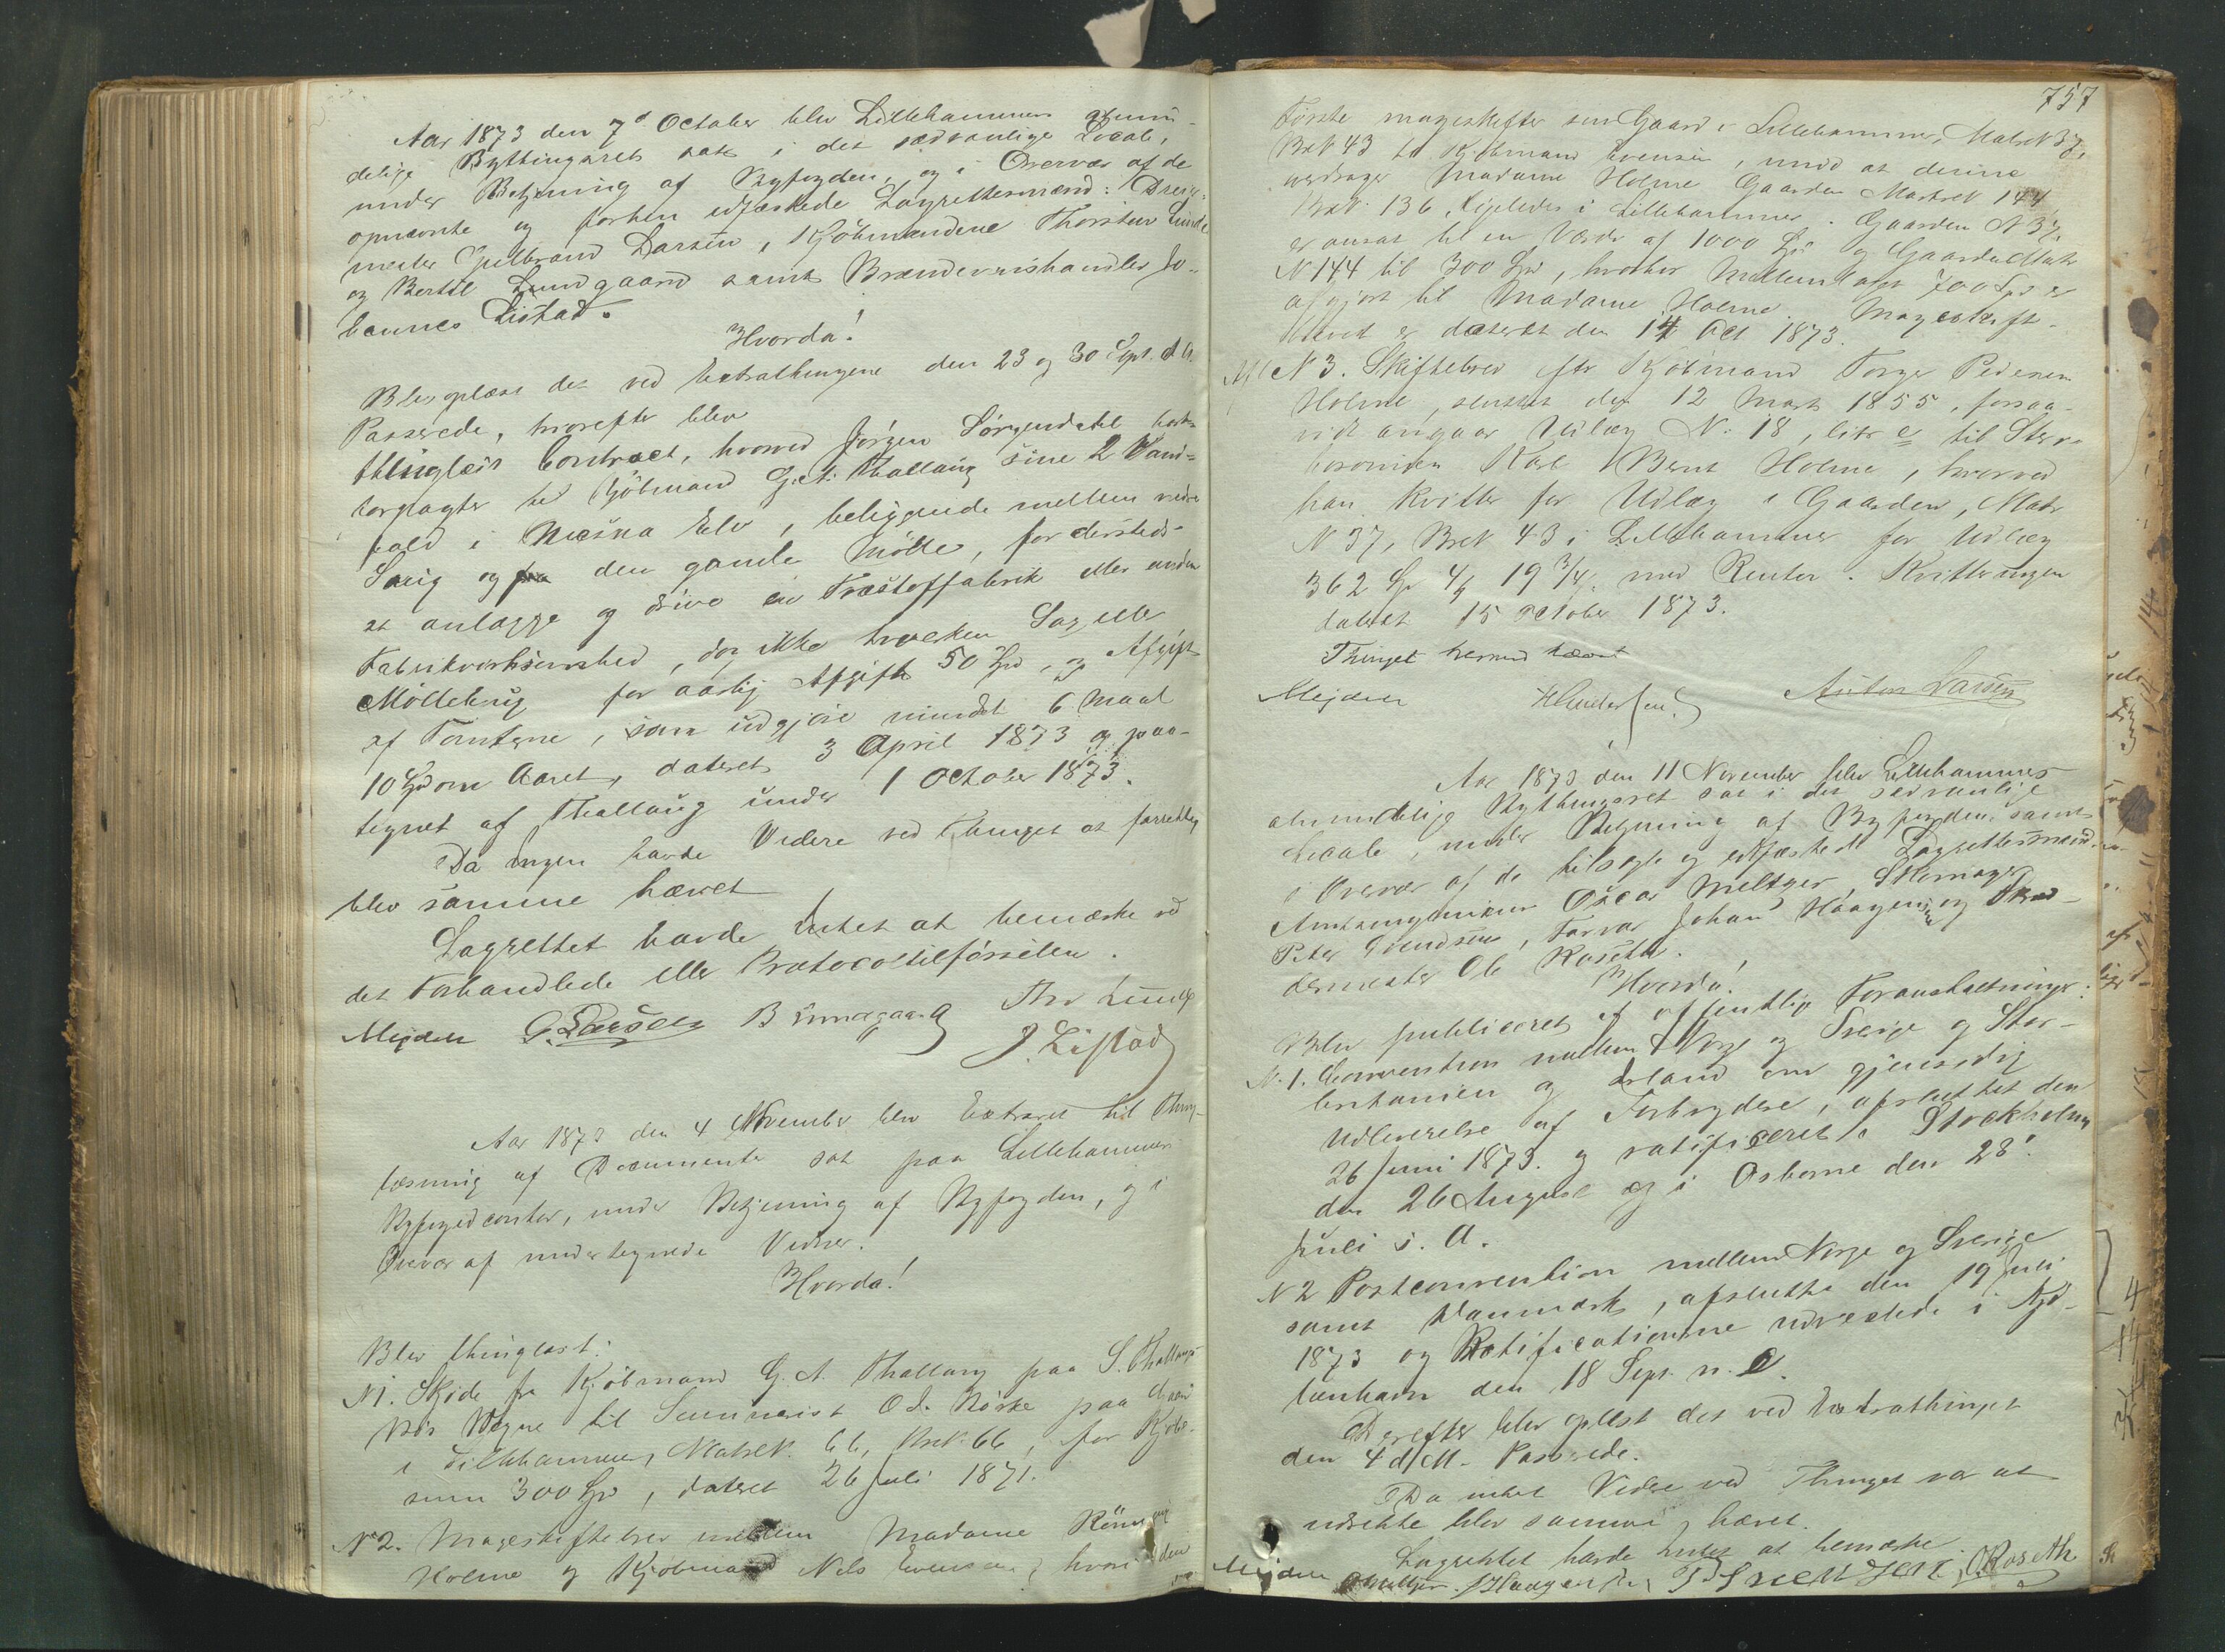 Aar 1873 den 7de October blev Lillehammers almin-
delige Bythingsret sat i det sædvanlige Locale,
under Betjening af Byfogden, og i Overvær af de
opnævnte og forhen edfæstede Lagrettesmænd: Dreier-
mester Gulbrand Larsen, Kjøbmændene Thorsten Lunde
og Bertel Lundgaard samt Brændeviinshandler Jo-
hannes Listad.
Hvorda!
Blev oplæst det ved Extrathingene den 23 og 30 Sept. d. A.
Passerede, hvorefter blev
thinglæst Contract, hvorved Jörgen Sörgendahl bort-
forpagter til Kjöbmand G. A. Thallaug sine 2 Vand-
fald i Mesna Elv, beliggende mellem nedre
Saug og den gamle Mölle, for dersteds
at anlægge og drive en Træstoffabrik eller anden
Fabrikvirksomhed, dog ikke hverken Sag eller
Möllebrug for aarlig Afgift 50 Spd, og Afgift
af Tomterne, som udgjöre mindst 6 Maal
10 Spd om Aaret, dateret 3 April 1873 og paa-
tegnet af Thallaug under 1 October 1873.
Da Ingen havde Videre ved Thinget at forrette,
blev samme hævet
Lagrettet havde Intet at bemærke ved
det Forhandlede eller Protocoltilförselen.
Mejdell G. Larsen B Lundgaard Thr Lunde
J. Listad
Aar 1873 den 4 November blev Extraret til Thing-
læsning af Documenter sat paa Lillehammers
Byfogedcontor, under Betjening af Byfogden, og i
Overvær af undertegnede Vidner.
Hvorda!
Blev thinglæst:
N 1. Skjöde fra Kjöbmand G. A. Thallaug paa S. Thallaugs
Bós Vegne til Seminarist O. J. Börke paa Gaard
i Lillehammer, Matr N. 66, Br N. 66, for Kjöbe-
sum 300 Spd, dateret 26 Juli 1871.
N 2. Mageskiftebrev mellem Madame Rönnaug
Holme og Kjöbmand Nils Evensen, hvori den
757
Første mageskifter sin Gaard i Lillehammer, Matr N 37,
Br N 43 til Kjöbmand Evensen, imod at denne
overdrager Madame Holme Gaarden Matr N 144
Br N. 136, ligeledes i Lillehammer. Gaarden N 37
er ansat til en Værdi af 1000 Spd og Gaarden Matr
N 144 til 300 Spd, hvorhos Mellemlaget 700 Spd er
afgjort til Madame Holme. Mageskift-
brevet er dateret den 14 Oct 1873.
N 3. Skiftebrev eftr Kjöbmand Torger Pedersen
Holme, sluttet den 12 Marts 1855, forsaa-
vidt angaar Udlæg N. 18, litr e til Sterv-
boesönnen Karl Bernt Holme, hvorved
han kvitter for Udlæg i Gaarden, Matr
N 37, Br N 43 i Lillehammer for Udlæg
362 Sp 4 19 3/4 med Renter. Kvitteringen
dateret 15 October 1873.
Thinget hermed hævet
Mejdell HAndersen. Anton Larsen
Aar 1873 den 11 November blev Lillehammers
almindelige Bythingsret sat i det sædvanlige
Locale, under Betjening af Byfogden, samt
i Overvær af de tilsagte og edfæstede Lagrettesmænd:
Amtsingeniør Oscar Meltzer, Skomager
Peter Svendsen, Farver Johan Haagensen og Skræ-
dermester Ole Roseth.
Hvorda!
Blev publiceret af offentlige Foranstaltninger:
N. 1. Convention mellem Norge og Sverige og Stor-
britanien og Irland om gjensidig
Udleverelse af Forbrydere, afsluttet den
26 Juni 1873. og ratificeret i Stockholm
den 26 August og i Osborne den 28!
Juli s. A.
N 2 Postconvention mellem Norge og Sverige
samt Danmark, afsluttet den 19 Juli
1873 og Ratificationerne udvexlede i Kjö-
benhavn den 18 Sept. n. e.
Derefter blev oplæst det ved Extrathinget
den 4 d/M. Passerede.
Da intet Videre ved Thinget var at
udrette blev samme hævet.
Lagrettet havde Intet at bemærke
Mejdell OMeltzer. J Haagensen P Svendsen, O Roseth